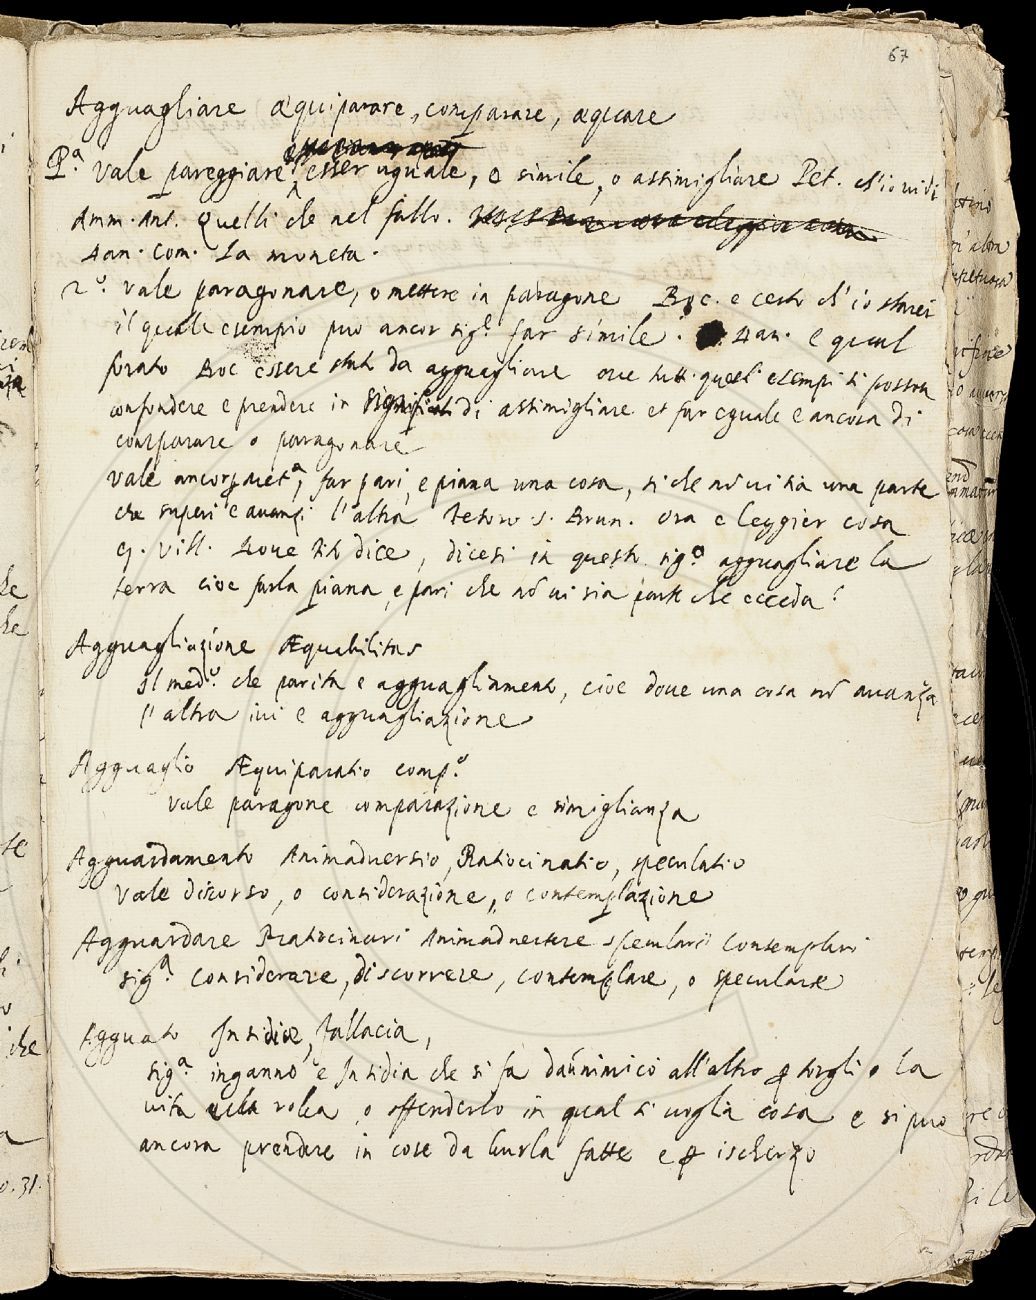 67
Agguagliare æquiparare, comparare, æquare
P.ª vale pareggiare esser uguale, o simile, o assimigliare Pet. ch'io vidi
Amm. Ant. Quelli che nel fallo.
Dan. Com. La moneta.
2.º vale paragonare, o mettere in paragone Boc. e certo ch'io starei
il quale esempio può ancor sig.e far simile. Dan. e qual
forato Boc essere stato da agguagliare ove tutt. quest' esempi si posson
confondere e prendere in significati di assimigliare et far eguale e ancora di
comparare o paragonare
vale ancor far pari, e piana una cosa, si che nō vi sia una parte
che superi e avanzi l'altra Tesoro S. Brun. Ora e leggier cosa
G. Vill. Dove Tito dice, dicesi in questo sig.º agguagliare la
terra cioe farla piana, e pari che nō vi sia parte che ecceda.
Agguagliazione Æquabilitas
Il med.º che parita e agguagliamento, cioe dove una cosa nō avanza
l'altra ivi e agguagliazione
Agguaglio Æquiparatio comp.º
vale paragone comparazione e simiglianza
Agguardamento Animadversio, Ratiocinatio, speculatio
Vale discorso, o considerazione, o contemplazione
Agguardare Ratiocinari Animadvertere speculari Contemplari
sig.ª considerare, discorrere, contemplare, o speculare
Agguato Insidiæ, fallacia,
sig.ª inganno e Insidia che si fa da un nimico all'altro ꝑ torgli o la
vita o la roba, o offenderlo in qual si voglia cosa e si puo
ancora prendere in cose da burla fatte e ꝑ ischerzo